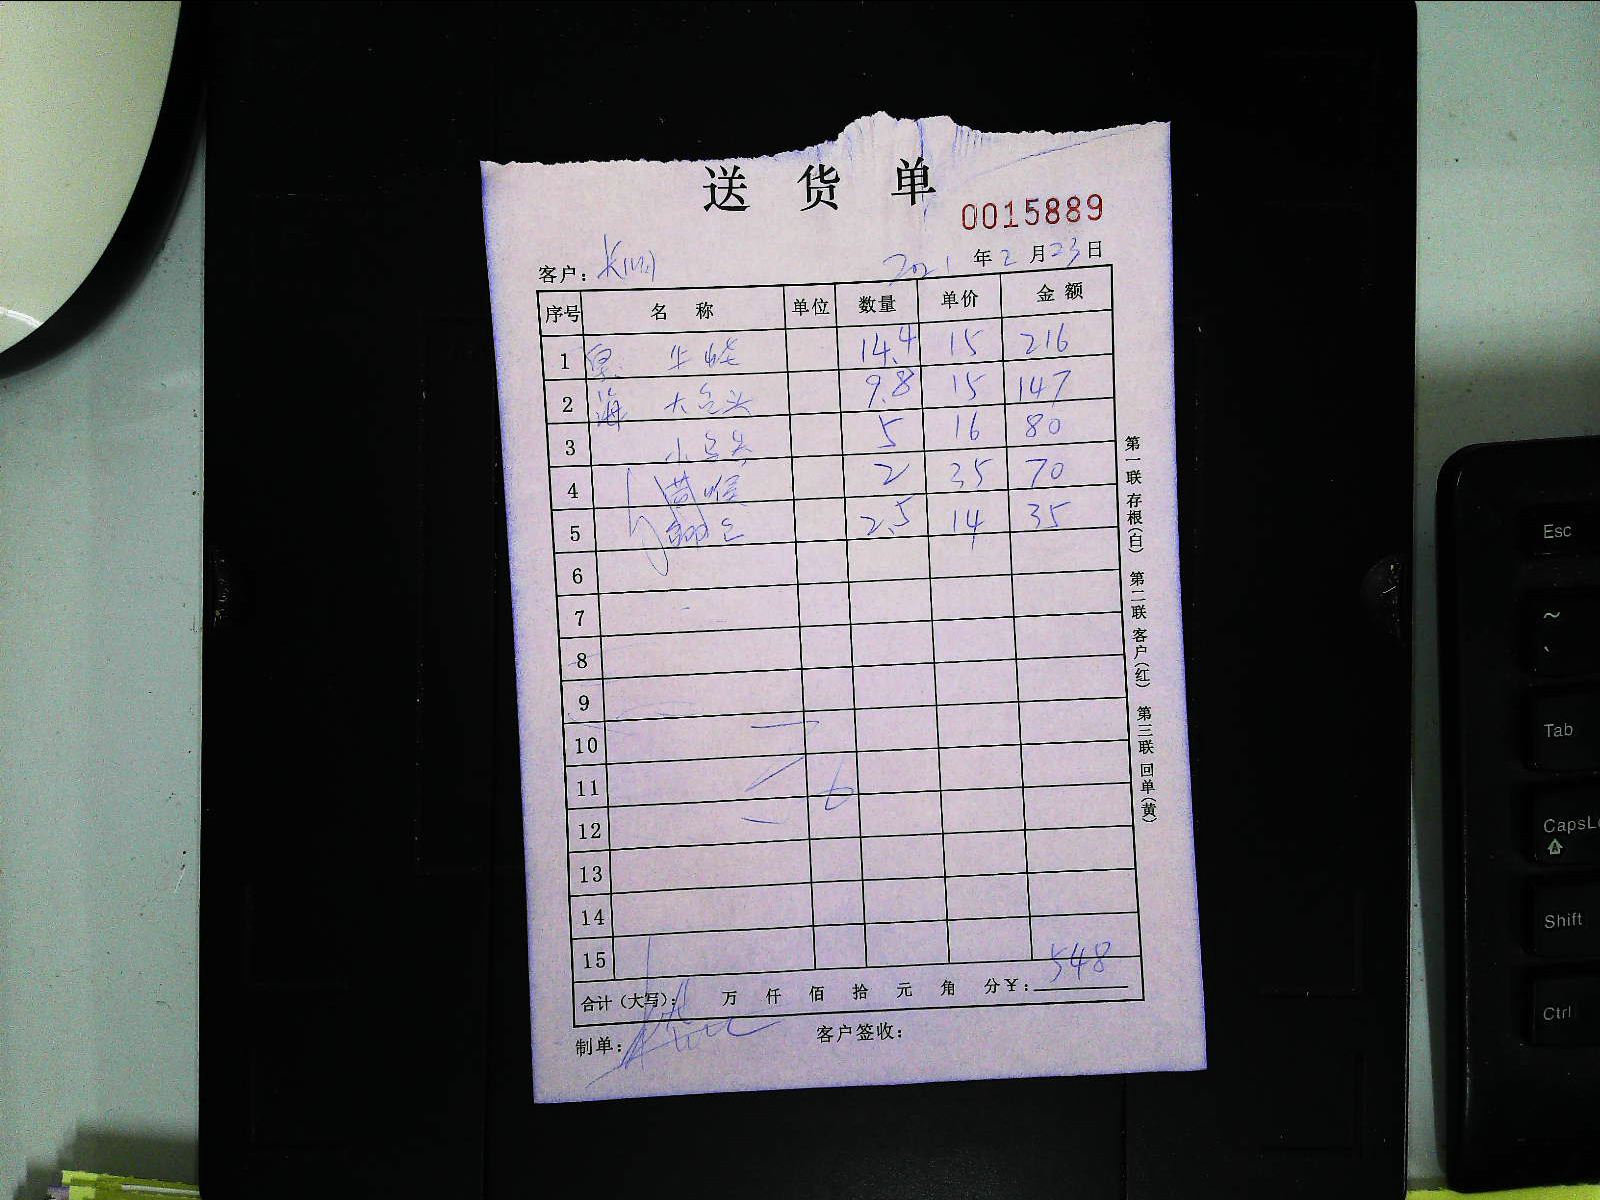 送 货 单
0015889
客户：
2021 年 2 月 23 日
序号 名 称 单位 数量 单价 金 额
1 14.4 15 216
2 海 大包头 9.8 15 147
3 小包头 5 16 80
4 黄喉 2 35 70
5 2.5 14 35
6
7
8
9
10
11 6
12
13
14
15
合计（大写）： 万 仟 佰 拾 元 角 分 ¥：548
制单： 客户签收：
第一联 存根（白） 第二联 客户（红） 第三联 回单（黄）
Esc
~
`
Tab
CapsLo
Shift
Ctrl